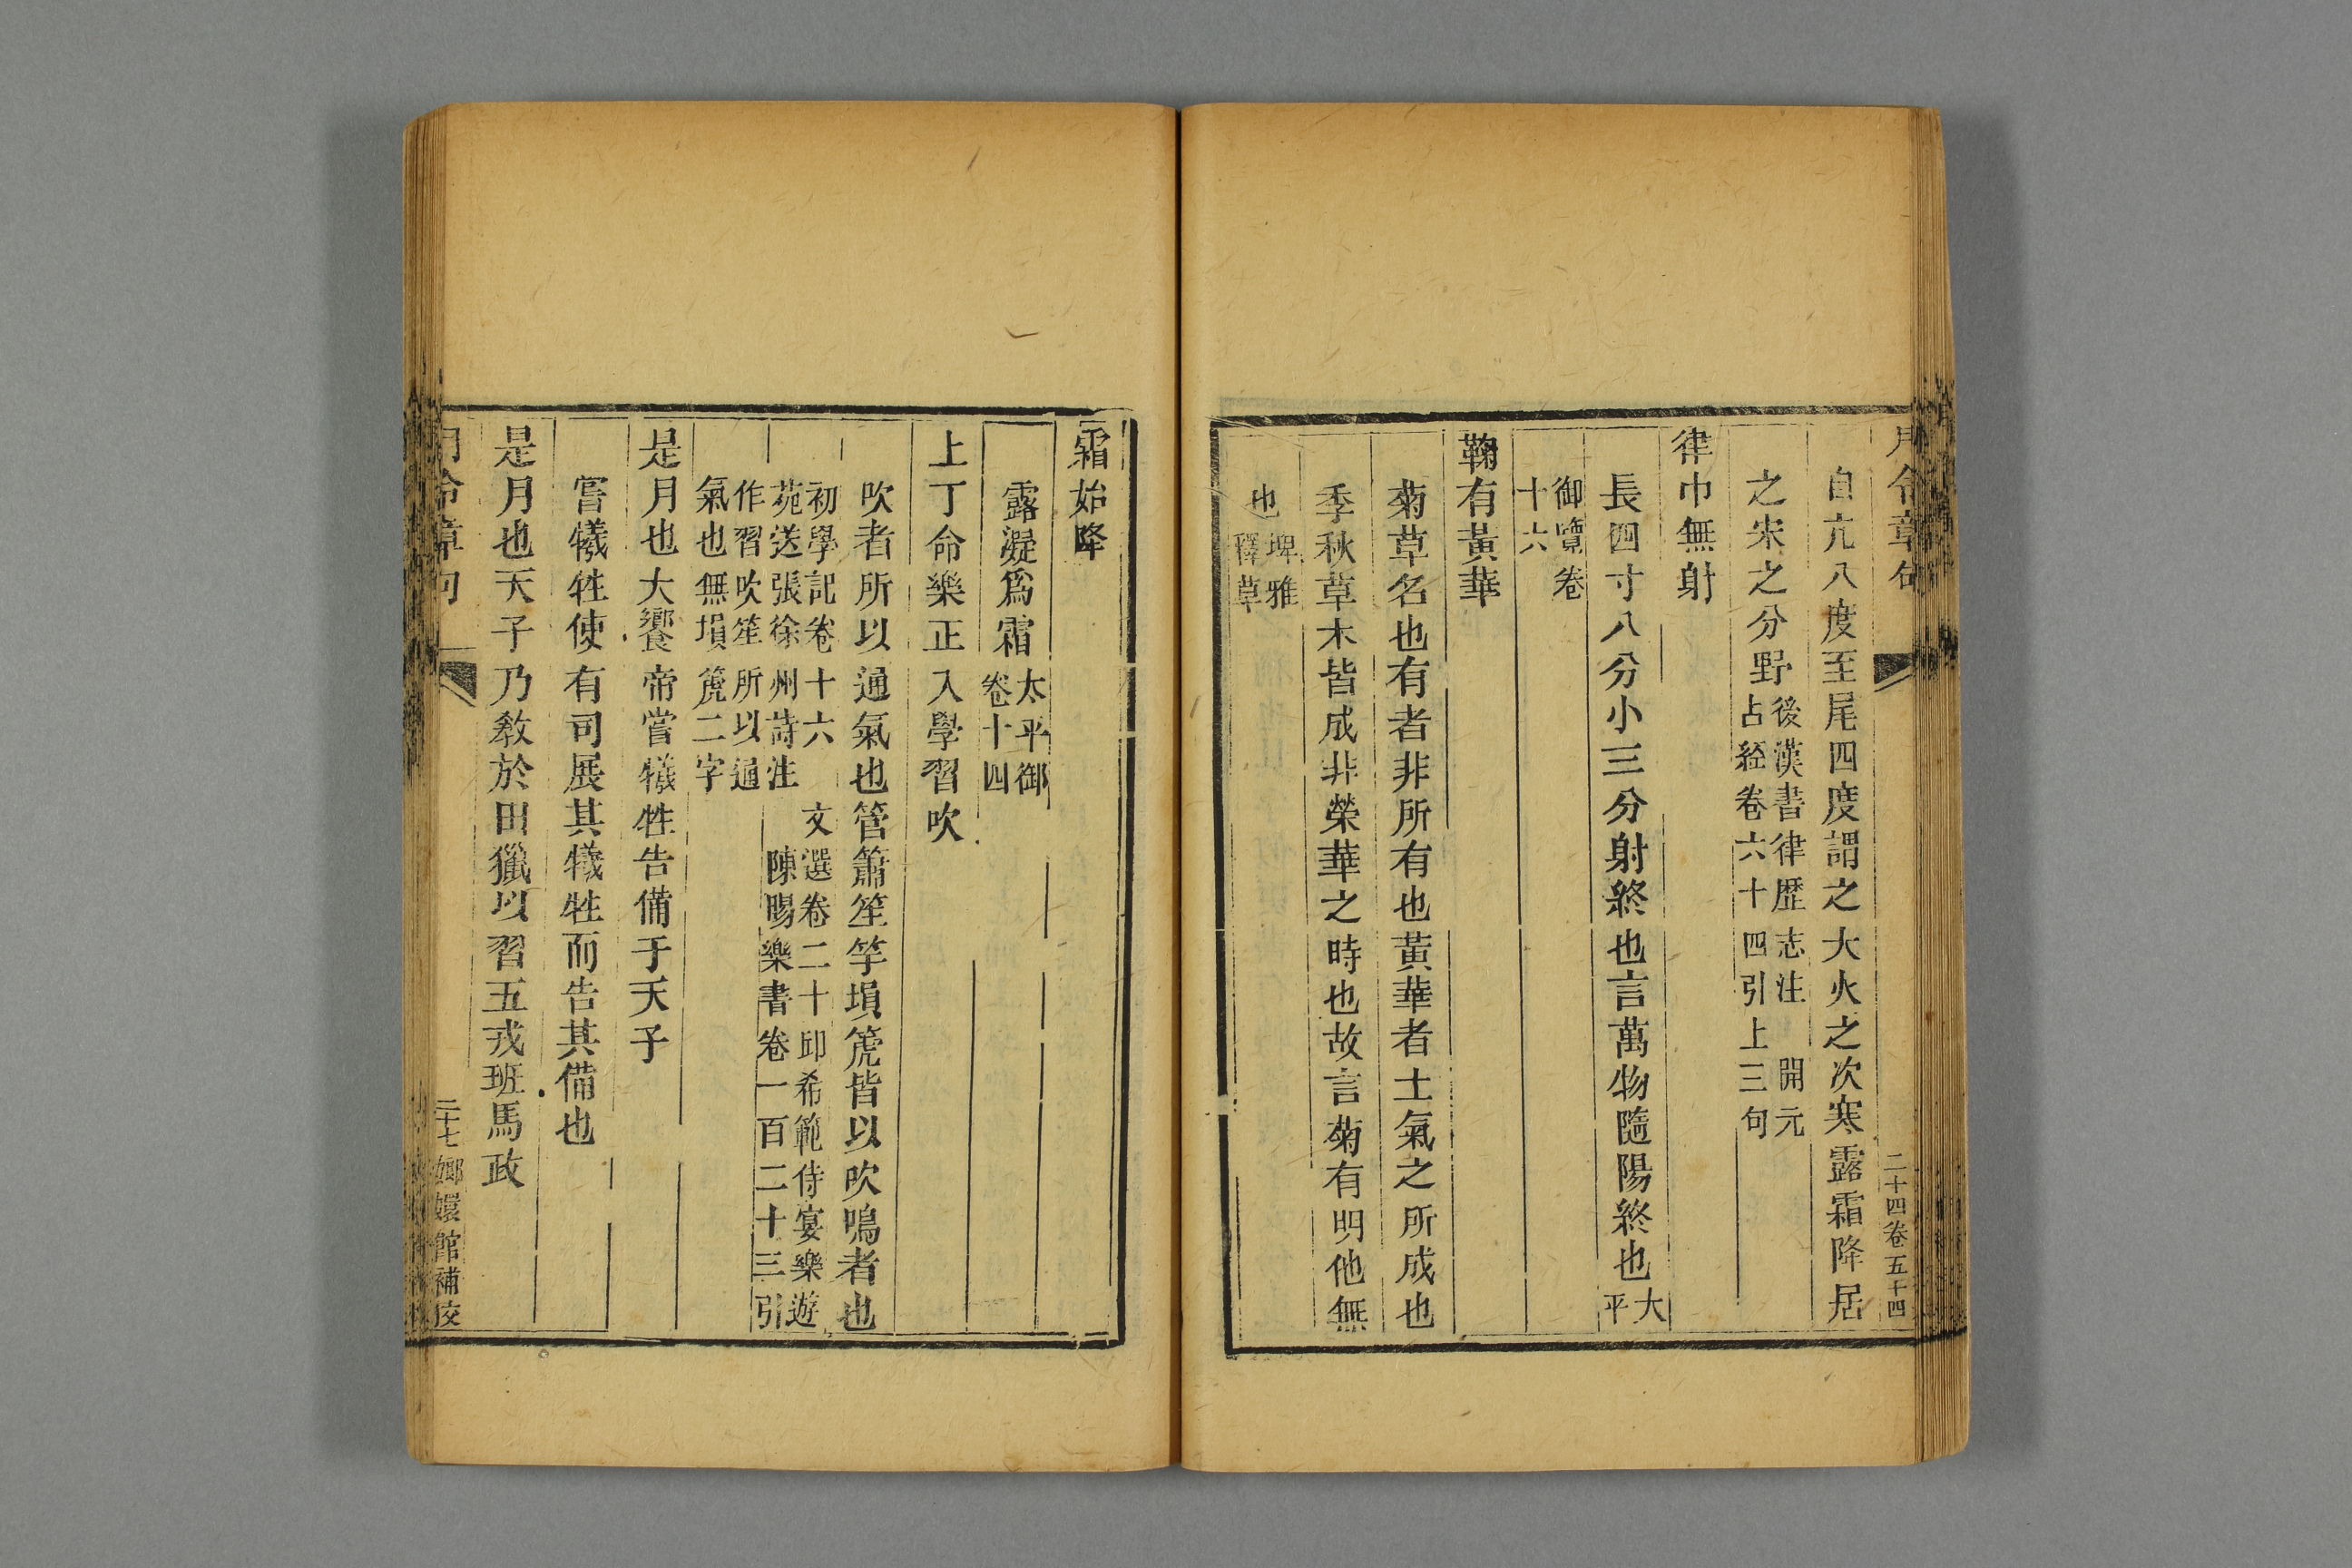 月令章句 二十四卷五十四
自亢八度至尾四度謂之大火之次寒露霜降居
之宋之分野後漢書律歷志注 開元
占經卷六十四引上三句
律中無射
長四寸八分小三分射終也言萬物隨陽終也大
平
御覽卷
十六
鞠有黃華
菊草名也有者非所有也黃華者土氣之所成也
季秋草木皆成非榮華之時也故言菊有明他無
也埤雅
釋草
霜始降
露凝爲霜太平御
卷十四
上丁命樂正入學習吹
吹者所以通氣也管簫笙竽塤箎皆以吹鳴者也
初學記卷十六 文選卷二十邱希範侍宴樂遊
苑送張徐州詩注 陳暘樂書卷一百二十三引
作習吹笙所以通
氣也無塤箎二字
是月也大饗帝嘗犧牲告備于天子
嘗犧牲使有司展其犧牲而告其備也
是月也天子乃教於田獵以習五戎班馬政
月令章句 二十七 嫏嬛館補校